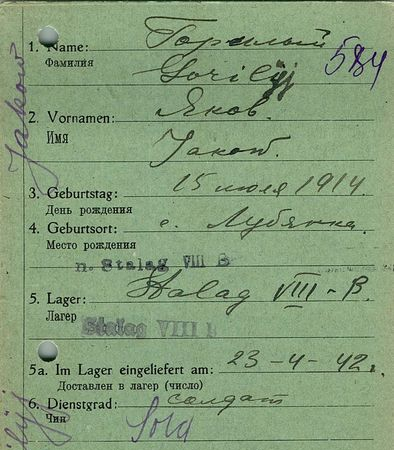 1. Name: Горилый
Фамилия Gorilÿj 584
2. Vornamen: Яков.
Имя Jakow.
Jakow
3. Geburtstag: 15 июля 1914
День рождения
4. Geburtsort: с. Лубянка
Место рождения
n. Stalag VIII B
5. Lager: Stalag VIII - B.
Лагер
Stalag VIII
5a. Im Lager eingeliefert am: 23-4-42 г.
Доставлен в лагер (число)
6. Dienstgrad: солдат
Чин Sold